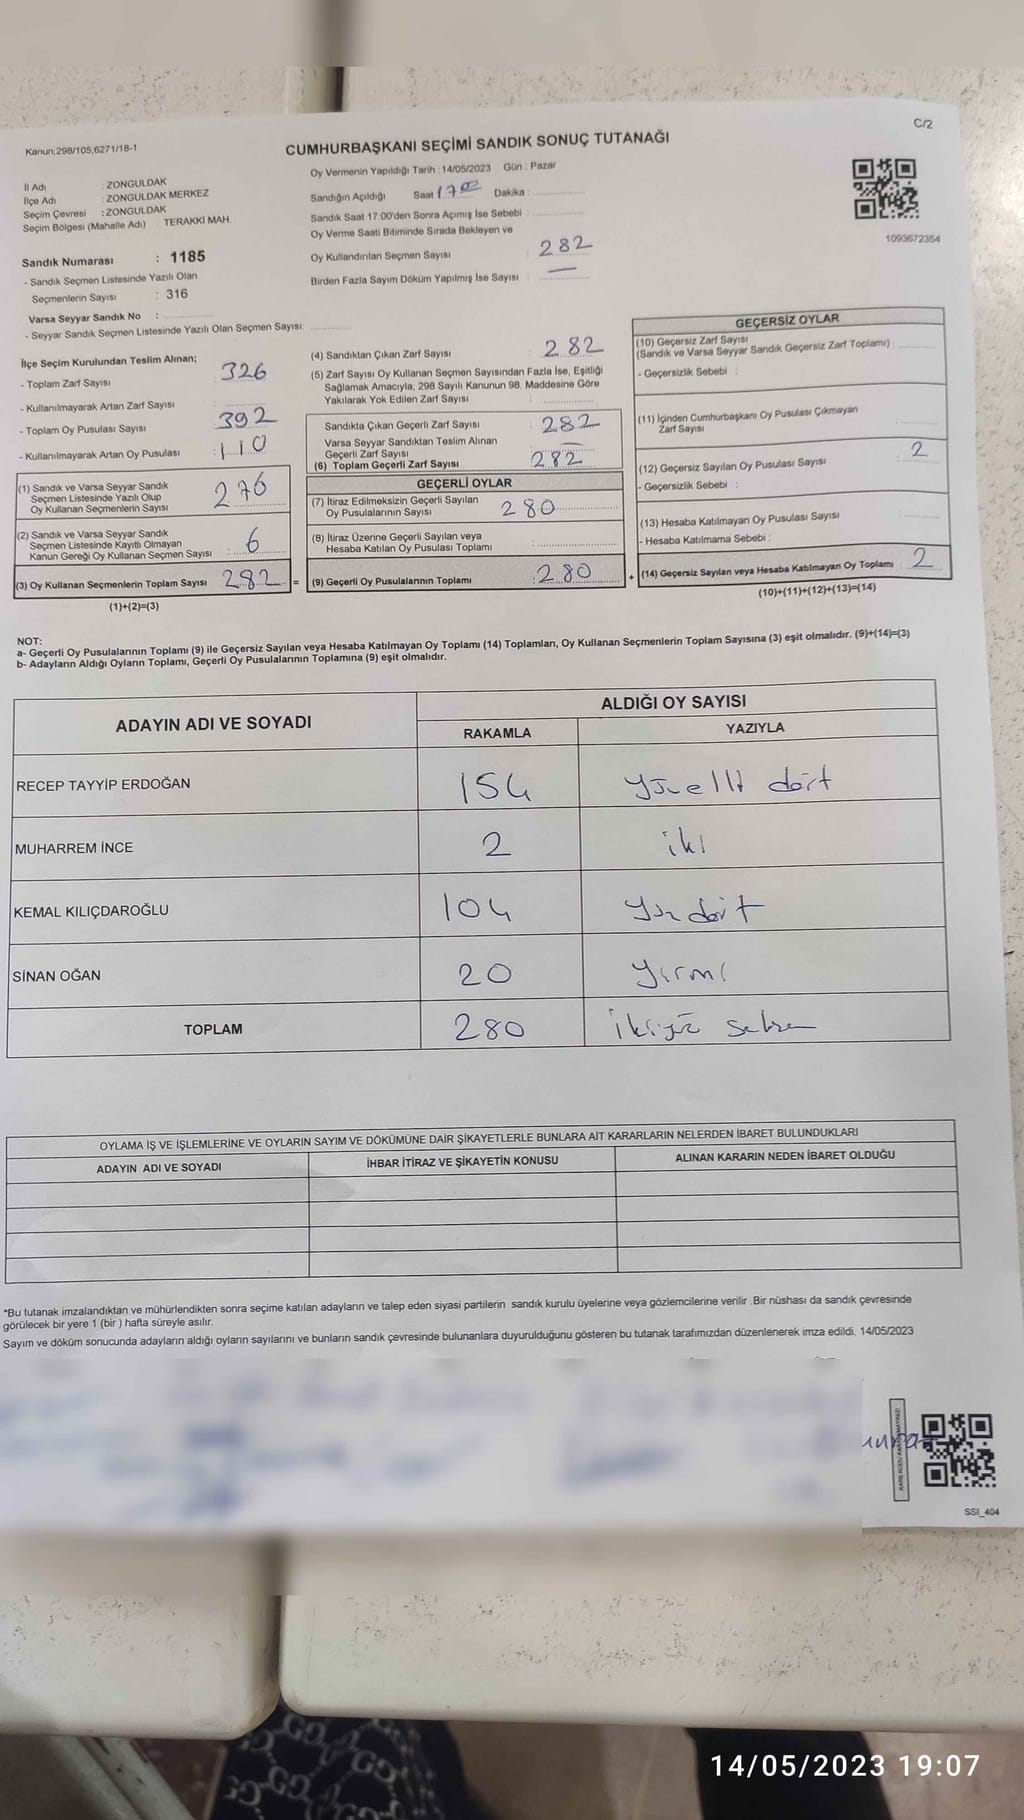 C/2
Kanun;298/105;6271/18-1
CUMHURBAŞKANI SEÇİMİ SANDIK SONUÇ TUTANAĞI
İl Adı : ZONGULDAK
İlçe Adı : ZONGULDAK MERKEZ
Seçim Çevresi : ZONGULDAK
Seçim Bölgesi (Mahalle Adı) : TERAKKİ MAH.
Sandık Numarası : 1185
- Sandık Seçmen Listesinde Yazılı Olan
Seçmenlerin Sayısı : 316
Varsa Seyyar Sandık No :
- Seyyar Sandık Seçmen Listesinde Yazılı Olan Seçmen Sayısı:
Oy Vermenin Yapıldığı Tarih : 14/05/2023 Gün : Pazar
Sandığın Açıldığı Saat 17 00 Dakika :
Sandık Saat 17:00'den Sonra Açımış İse Sebebi :
Oy Verme Saati Bitiminde Sırada Bekleyen ve
Oy Kullandırılan Seçmen Sayısı : 282
Birden Fazla Sayım Döküm Yapılmış İse Sayısı : —
1093672354
İlçe Seçim Kurulundan Teslim Alınan;
- Toplam Zarf Sayısı : 326
- Kullanılmayarak Artan Zarf Sayısı :
- Toplam Oy Pusulası Sayısı : 392
- Kullanılmayarak Artan Oy Pusulası : 110
(1) Sandık ve Varsa Seyyar Sandık
Seçmen Listesinde Yazılı Olup
Oy Kullanan Seçmenlerin Sayısı : 276
(2) Sandık ve Varsa Seyyar Sandık
Seçmen Listesinde Kayıtlı Olmayan
Kanun Gereği Oy Kullanan Seçmen Sayısı : 6
(3) Oy Kullanan Seçmenlerin Toplam Sayısı : 282 =
(1)+(2)=(3)
(4) Sandıktan Çıkan Zarf Sayısı : 282
(5) Zarf Sayısı Oy Kullanan Seçmen Sayısından Fazla İse, Eşitliği
Sağlamak Amacıyla; 298 Sayılı Kanunun 98. Maddesine Göre
Yakılarak Yok Edilen Zarf Sayısı :
Sandıkta Çıkan Geçerli Zarf Sayısı : 282
Varsa Seyyar Sandıktan Teslim Alınan
Geçerli Zarf Sayısı : —
(6) Toplam Geçerli Zarf Sayısı : 282
GEÇERLİ OYLAR
(7) İtiraz Edilmeksizin Geçerli Sayılan
Oy Pusulalarının Sayısı : 280
(8) İtiraz Üzerine Geçerli Sayılan veya
Hesaba Katılan Oy Pusulası Toplamı :
(9) Geçerli Oy Pusulalarının Toplamı : 280 +
GEÇERSİZ OYLAR
(10) Geçersiz Zarf Sayısı
(Sandık ve Varsa Seyyar Sandık Geçersiz Zarf Toplamı) :
- Geçersizlik Sebebi :
(11) İçinden Cumhurbaşkanı Oy Pusulası Çıkmayan
Zarf Sayısı :
(12) Geçersiz Sayılan Oy Pusulası Sayısı : 2
- Geçersizlik Sebebi :
(13) Hesaba Katılmayan Oy Pusulası Sayısı :
- Hesaba Katılmama Sebebi :
(14) Geçersiz Sayılan veya Hesaba Katılmayan Oy Toplamı : 2
(10)+(11)+(12)+(13)=(14)
NOT:
a- Geçerli Oy Pusulalarının Toplamı (9) ile Geçersiz Sayılan veya Hesaba Katılmayan Oy Toplamı (14) Toplamları, Oy Kullanan Seçmenlerin Toplam Sayısına (3) eşit olmalıdır. (9)+(14)=(3)
b- Adayların Aldığı Oyların Toplamı, Geçerli Oy Pusulalarının Toplamına (9) eşit olmalıdır.
ADAYIN ADI VE SOYADI
ALDIĞI OY SAYISI
RAKAMLA YAZIYLA
RECEP TAYYİP ERDOĞAN 154 yüzelli dört
MUHARREM İNCE 2 iki
KEMAL KILIÇDAROĞLU 104 yüz dört
SİNAN OĞAN 20 yirmi
TOPLAM 280 ikiyüz seksen
OYLAMA İŞ VE İŞLEMLERİNE VE OYLARIN SAYIM VE DÖKÜMÜNE DAİR ŞİKAYETLERLE BUNLARA AİT KARARLARIN NELERDEN İBARET BULUNDUKLARI
ADAYIN ADI VE SOYADI İHBAR İTİRAZ VE ŞİKAYETİN KONUSU ALINAN KARARIN NEDEN İBARET OLDUĞU
*Bu tutanak imzalandıktan ve mühürlendikten sonra seçime katılan adayların ve talep eden siyasi partilerin sandık kurulu üyelerine veya gözlemcilerine verilir .Bir nüshası da sandık çevresinde
görülecek bir yere 1 (bir ) hafta süreyle asılır.
Sayım ve döküm sonucunda adayların aldığı oyların sayılarını ve bunların sandık çevresinde bulunanlara duyurulduğunu gösteren bu tutanak tarafımızdan düzenlenerek imza edildi. 14/05/2023
SSI_404
14/05/2023 19:07